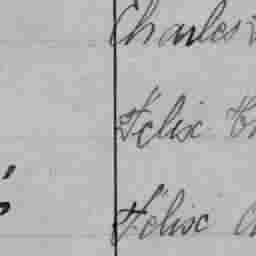 Charles
Félix
Félix